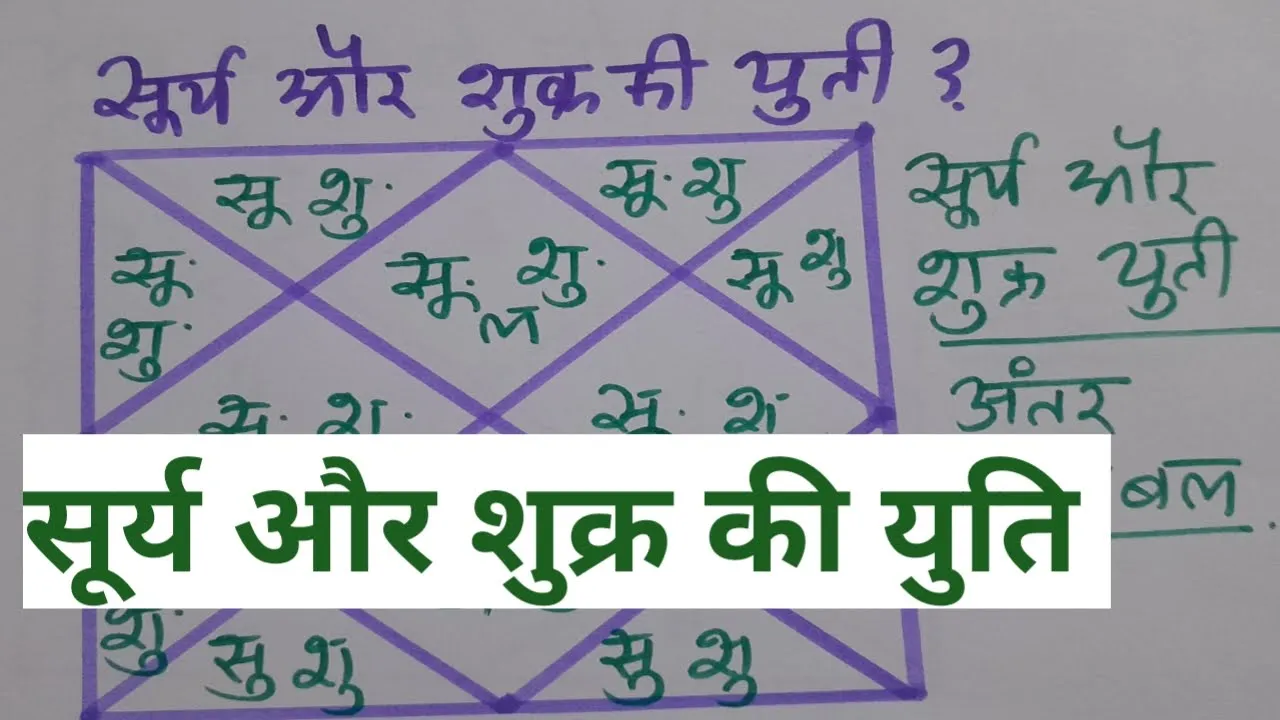 सूर्य और शुक्र की युती ?
सू शु.
सू. शु
सूर्य और
शुक्र युती
सू.
शु.
सू. शु.
ल
सू शु
अंतर
सू. शु.
सू. शु
बल
सूर्य और शुक्र की युति
शु.
सु शु
सु शु